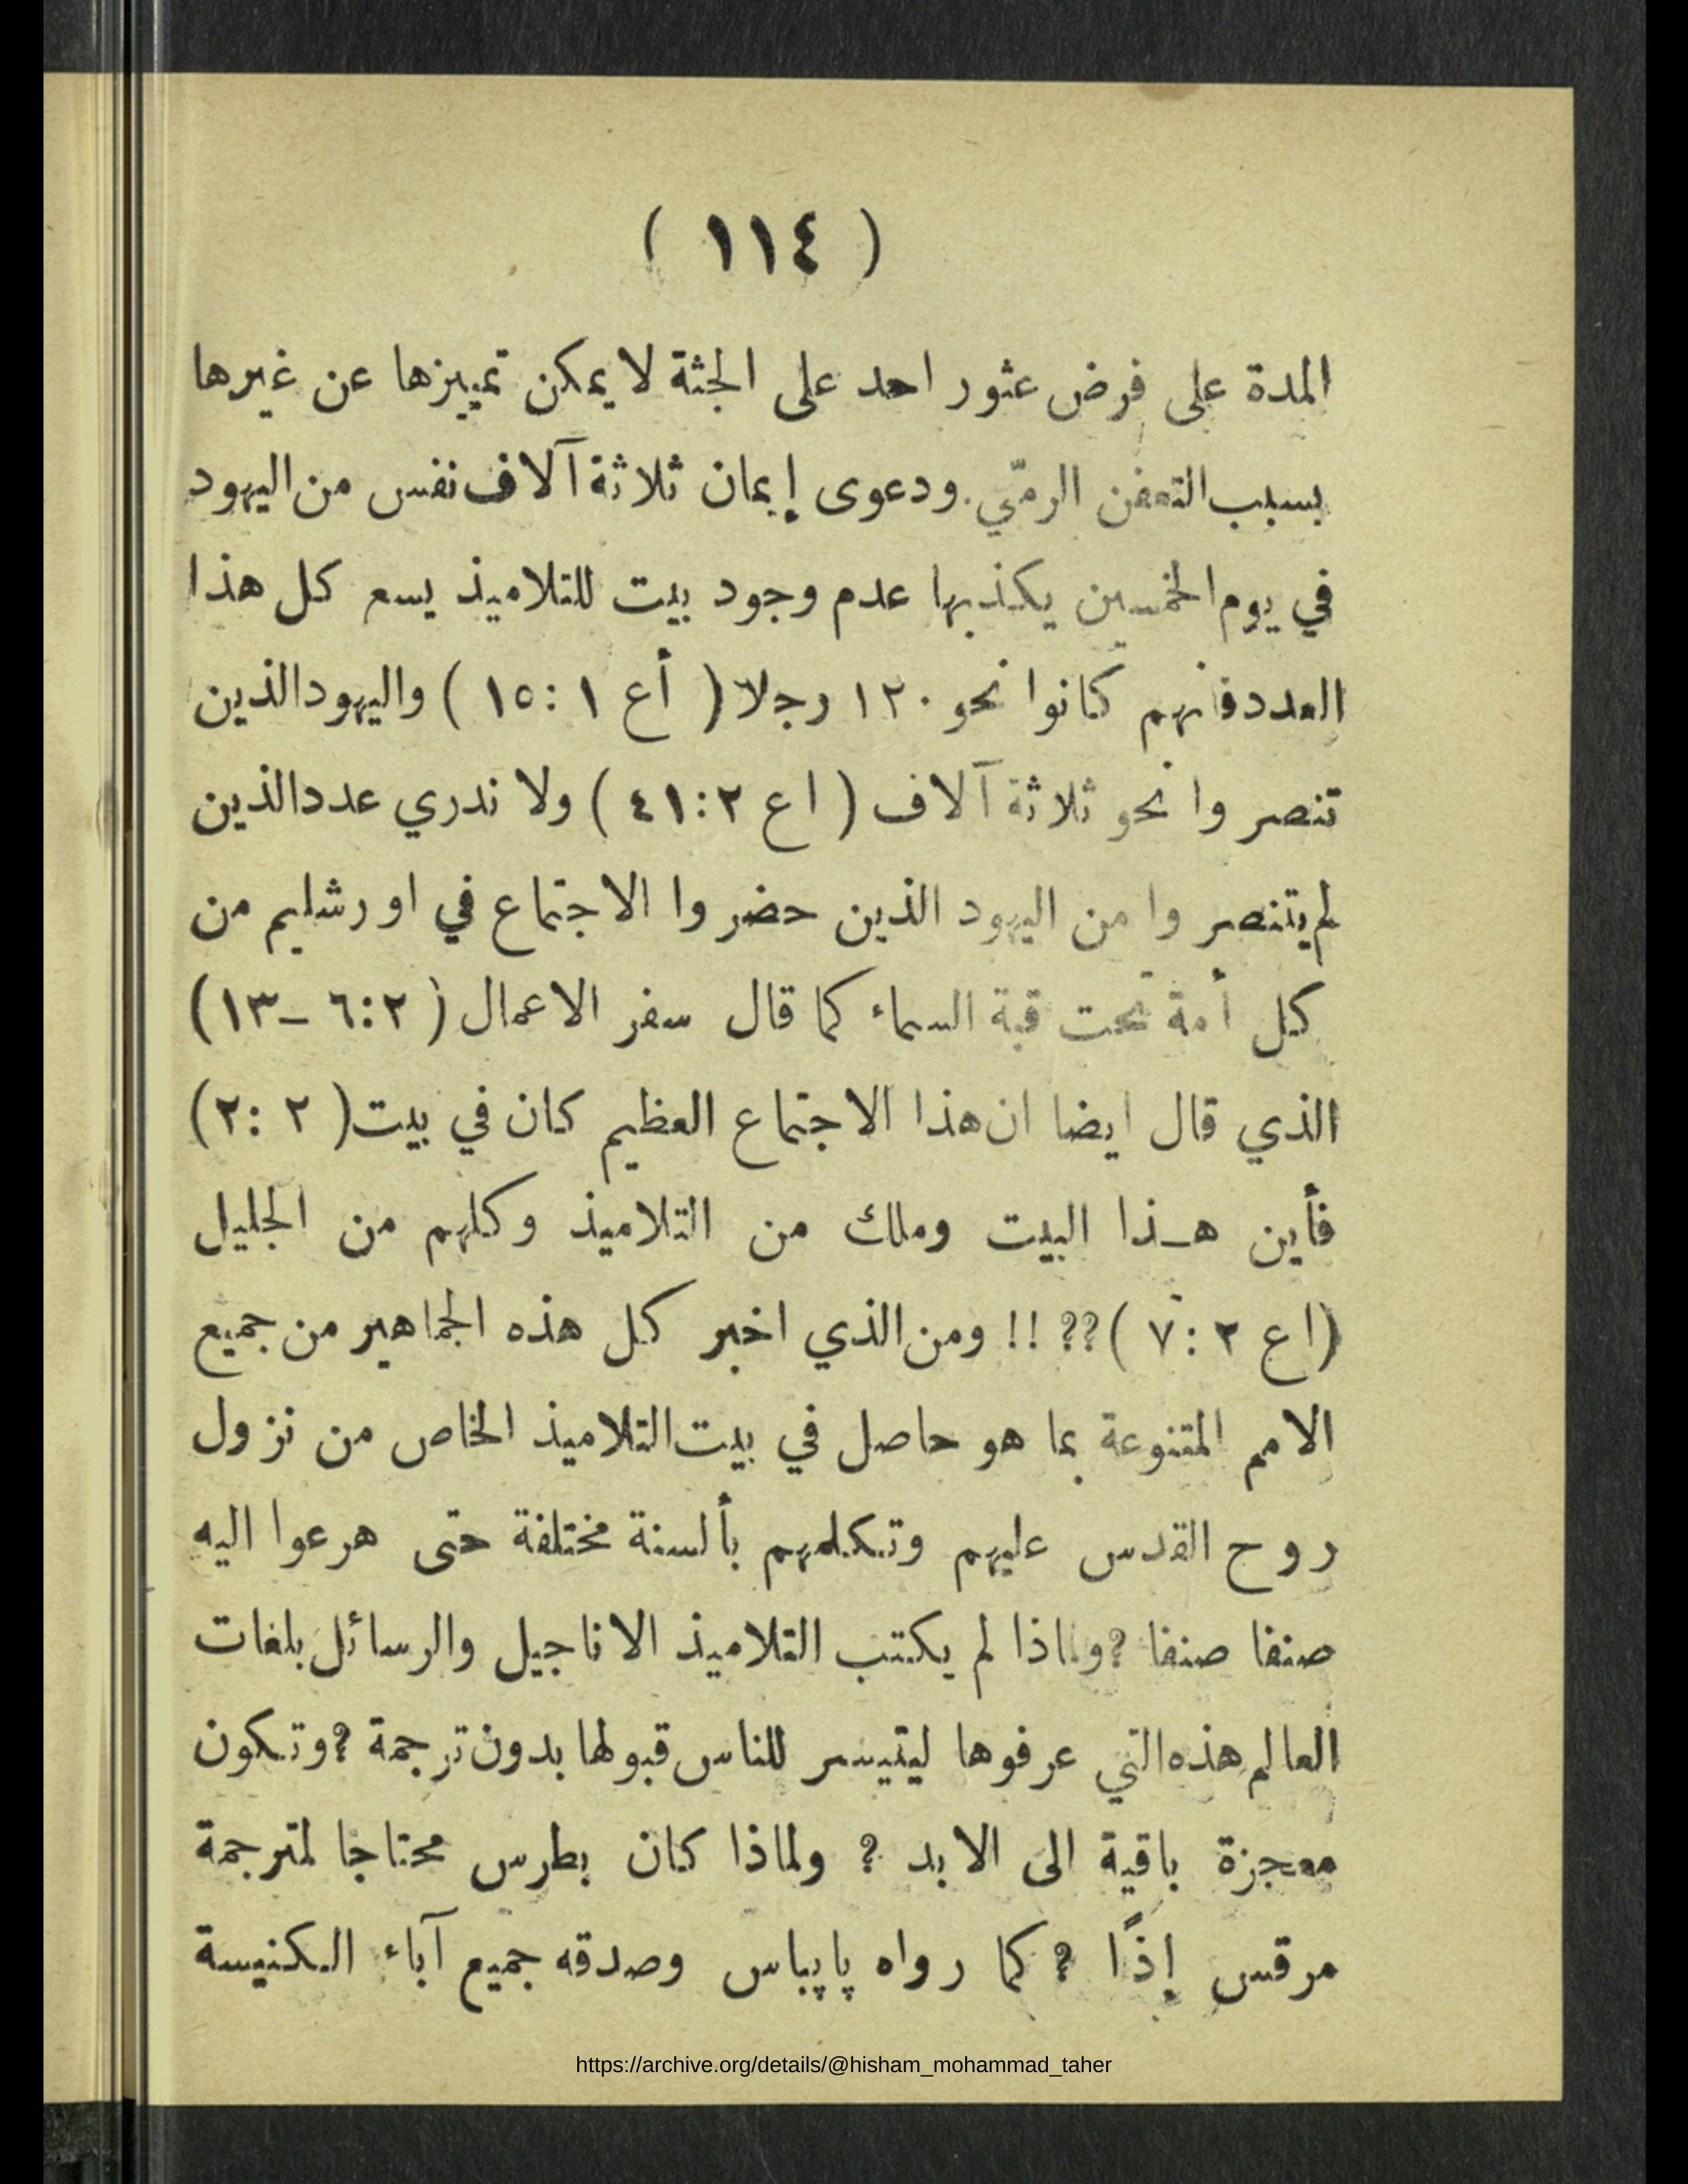 ( ١١٤ )
المدة على فرض عثور احد على الجثة لا يمكن تمييزها عن غيرها
بسبب التعفن الرمّي. ودعوى إيمان ثلاثة آلاف نفس من اليهود
في يوم الخمسين يكذبها عدم وجود بيت للتلاميذ يسع كل هذا
العدد فانهم كانوا نحو ١٢٠ رجلا ( أع ١ : ١٥ ) واليهود الذين
تنصروا نحو ثلاثة آلاف ( اع ٢ : ٤١ ) ولا ندري عدد الذين
لم يتنصروا من اليهود الذين حضروا الاجتماع في اورشليم من
كل أمة تحت قبة السماء كما قال سفر الاعمال ( ٢ : ٦ – ١٣ )
الذي قال ايضا ان هذا الاجتماع العظيم كان في بيت ( ٢ : ٢ )
فأين هـذا البيت وملك من التلاميذ وكلهم من الجليل
( اع ٢ : ٧ ) ?? !! ومن الذي اخبر كل هذه الجماهير من جميع
الامم المتنوعة بما هو حاصل في بيت التلاميذ الخاص من نزول
روح القدس عليهم وتكلمهم بألسنة مختلفة حتى هرعوا اليه
صنفا صنفا ? ولماذا لم يكتب التلاميذ الاناجيل والرسائل بلغات
العالم هذه التي عرفوها ليتيسر للناس قبولها بدون ترجمة ? وتكون
معجزة باقية الى الابد ? ولماذا كان بطرس محتاجا لمترجمة
مرقس إذًا ? كما رواه پاپياس وصدقه جميع آباء الكنيسة
https://archive.org/details/@hisham_mohammad_taher